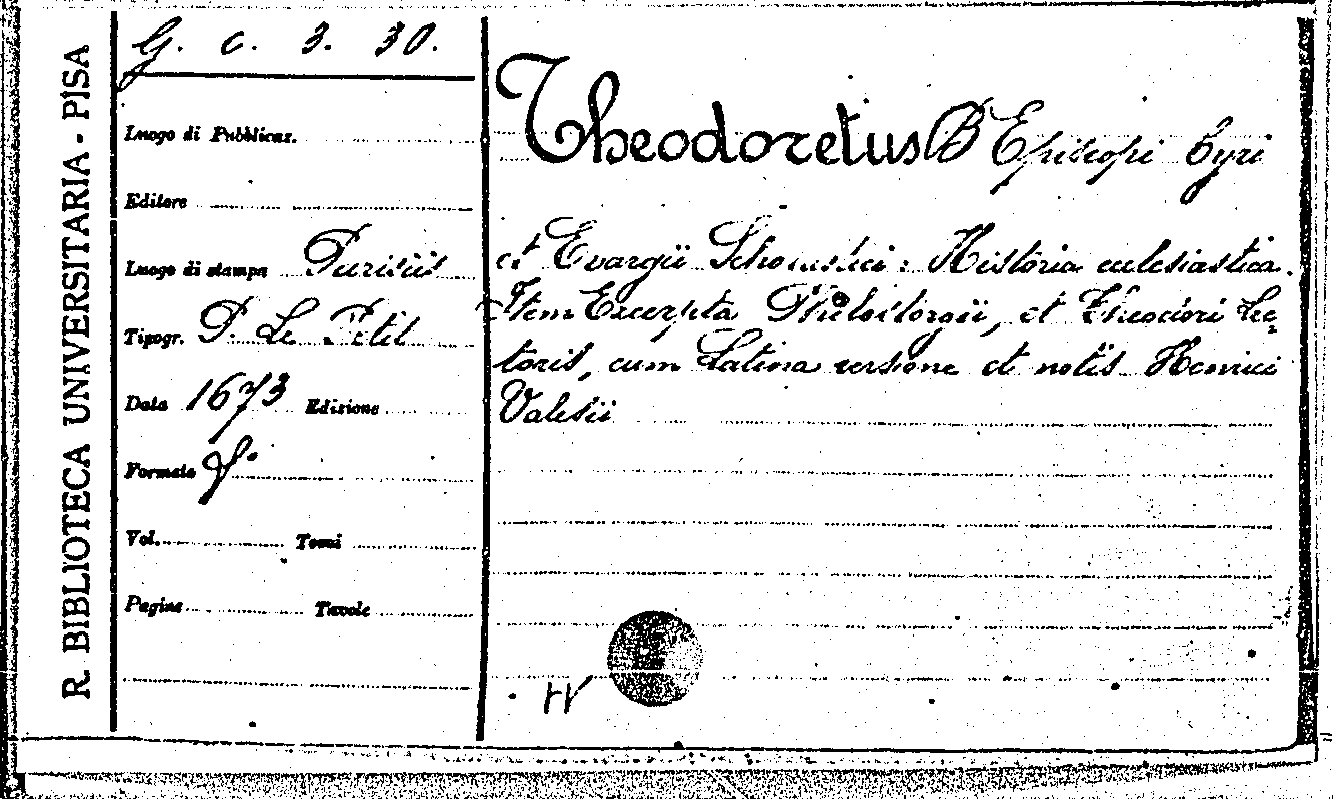 R. BIBLIOTECA UNIVERSITARIA - PISA
G. c. 3. 30.
Luogo di Pubblicaz.
Editore
Luogo di stampa Parisiis
Tipogr. P. Le Petit
Data 1673 Edizione
Formato f.º
Vol. Tomi
Pagine Tavole
Theodoretus B Episcopi Cyri
et Evargii Scholastici : Historia eclesiastica.
Item Excerpta Philostorgii, et Theodori Lec
toris, cum Latina versione et notis Henrici
Valesii